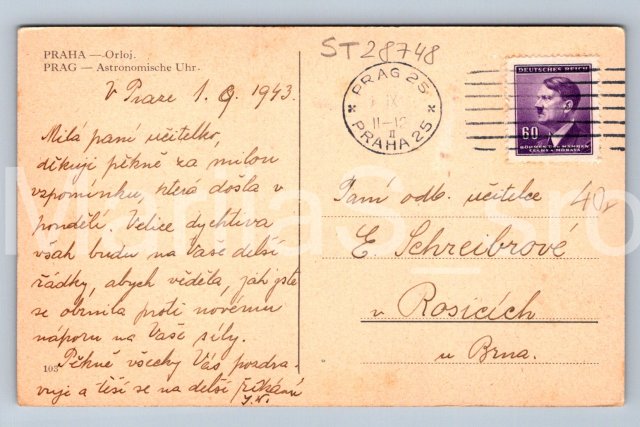 PRAHA — Orloj.
PRAG — Astronomische Uhr.
ST28748
V Praze 1. 9. 1943.
Milá paní učitelko,
děkuji pěkně za milou
vzpomínku, která došla v
pondělí. Velice dychtiva
však budu na Vaše delší
řádky, abych věděla, jak jste
se obrnila proti novému
náporu na Vaše síly.
Pěkně všecky Vás pozdra-
vuje a těší se na delší
J.N.
103
PRAG 25
IX
11-12
II
PRAHA 25
DEUTSCHES REICH
60
BÖHMEN UND MÄHREN
ČECHY A MORAVA
Paní odb. učitelce
40,-
E Schreibrové
v Rosicích
u Brna.